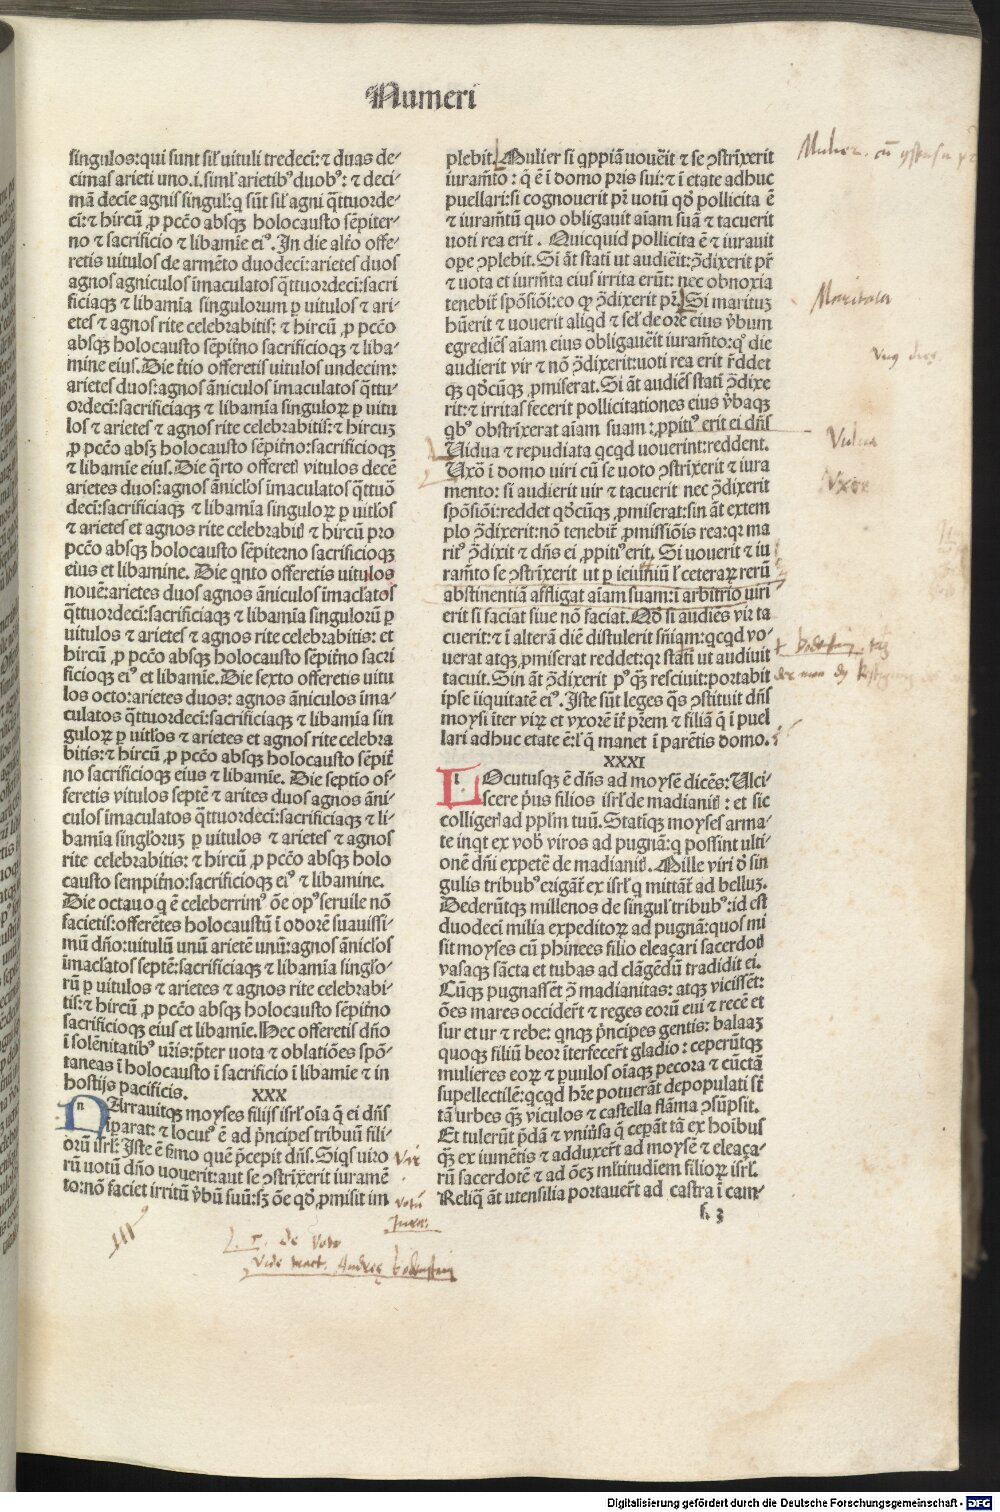 Numeri
singulos:qui sunt sił vituli tredecī:⁊ duas de⸗
cimas arieti uno.i.siml̃ arietibꝰ duobꝰ:⁊ deci⸗
mā decīe agnis singul̃:q̄ sūt sił agni q̈ttuorde⸗
cī:⁊ hircū ꝓ pcc̄o absqꝫ holocausto sēpiter⸗
no ⁊ sacrificio ⁊ libamīe eiꝰ. In die alt̄o offe⸗
retis vitulos de armēto duodecī:arietes duos
agnos agniculos īmaculatos q̈ttuordecī:sacri
ficiaqꝫ ⁊ libamīa singulorum ꝑ vitulos ⁊ ari⸗
etes ⁊ agnos rite celebrabitis:⁊ hircū ꝓ pcc̄o
absqꝫ holocausto sēpit̄no sacrificioqꝫ ⁊ liba⸗
mine eius. Die t̄tio offeretis vitulos undecim:
arietes duos:agnos āniculos īmaculatos q̈ttu⸗
ordecī:sacrificiaqꝫ ⁊ libamīa singuloꝝ ꝑ vitu
los ⁊ arietes ⁊ agnos rite celebrabitis:⁊ hircuꝫ
ꝓ pcc̄o absꝫ holocausto sēpit̄no:sacrificioqꝫ
⁊ libamīe eius. Die q̈rto offeretꝭ vitulos decē
arietes duos:agnos āniclos īmaculatos q̈ttuō
decī:sacrificiaqꝫ ⁊ libamīa singuloꝝ ꝑ vitłos
⁊ arietes et agnos rite celebrabitꝭ ⁊ hircū pro
pcc̄o absqꝫ holocausto sēpiterno sacrificioqꝫ
eius et libamine. Die qnto offeretis vitulos
nouē:arietes duos agnos āniculos īmacłatos
q̈ttuordecī:sacrificiaqꝫ ⁊ libamīa singulorū ꝑ
vitulos ⁊ arietes ⁊ agnos rite celebrabitis: et
hircū ꝓ pcc̄o absqꝫ holocausto sēpit̄no sacri
ficioqꝫ eiꝰ et libamīe. Die sexto offeretis vitu
los octo:arietes duos: agnos āniculos īma⸗
culatos q̈ttuordecī:sacrificiaqꝫ ⁊ libamīa sin
guloꝝ ꝑ vitłos ⁊ arietes et agnos rite celebra
bitis:⁊ hircū ꝓ pcc̄o absqꝫ holocausto sēpit̄
no sacrificioqꝫ eius ⁊ libamīe. Die septīo of⸗
feretis vitulos septē ⁊ arites duos agnos āni⸗
culos īmaculatos q̈ttuordecī:sacrificiaqꝫ ⁊ li⸗
bamīa singłoruꝫ ꝑ vitulos ⁊ arietes ⁊ agnos
rite celebrabitis:⁊ hircū ꝓ pcc̄o absqꝫ holo
causto sempit̄no:sacrificioqꝫ eiꝰ ⁊ libamine.
Die octauo q ē celeberrimꝰ ōe opꝰ seruile nō
facietis:offerētes holocaustū ī odorē suauissi⸗
mū dn̄o:vitulū unū arietē unū:agnos āniclos
īmacłatos septē:sacrificiaqꝫ ⁊ libamīa singło⸗
rū ꝑ vitulos ⁊ arietes ⁊ agnos rite celebrabi⸗
tis:⁊ hircū ꝓ pcc̄o absqꝫ holocausto sēpit̄no
sacrificioqꝫ eius et libamīe. Hec offeretis dn̄o
ī solēnitatibꝰ vr̄is:p̄ter uota ⁊ oblatiōes spō⸗
taneas ī holocausto ī sacrificio ī libamīe ⁊ in
hostijs pacificis.
XXX
NArrauitqꝫ moyses filijs isrł oīa q̄ ei dn̄s
īparat:⁊ locutꝰ ē ad p̄ncipes tribuū fili⸗
orū isrł: Iste ē s̄mo quē p̄cepit dn̄s. Siqs viro
rū uotū dn̄o uouerit:aut se ꝯstrīxerit iuramē⸗
to:nō faciet irritū v̄bū suū:sꝫ ōe qd̄ ꝓmisit im
plebit. Mulier si qppiā uouēit ⁊ se ꝯstrīxerit
iuram̄to: q̄ ē ī domo pris sui:⁊ ī etate adhuc
puellari:si cognouerit pr̄ votū qd̄ pollicita ē
⁊ iuram̄tū quo obligauit aīam suā ⁊ tacuerit
uoti rea erit. Quicquid pollicita ē ⁊ iurauit
oꝑe ꝯplebit. Si āt stati ut audiēit:ꝯ̄dixerit pr̄
⁊ uota et iurm̄ta eius irrita erūt: nec obnoxia
tenebit̄ spōsiōi:eo qꝫ ꝯ̄dixerit pr̄. Si marituꝫ
hūerit ⁊ uouerit aliqd ⁊ seł de ore eius v̄bum
egrediēs aīam eius obligauēit iuram̄to:qͦ die
audierit vir ⁊ nō ꝯ̄dixerit:uoti rea erit r̄ddet
qꝫ qd̄cūqꝫ ꝓmiserat. Si āt audiēs statī ꝯ̄dixe
rit:⁊ irritas fecerit pollicitationes eius v̄baqꝫ
qbꝰ obstrīxerat aīam suam:ꝓpitiꝰ erit ei dn̄s
Vidua ⁊ repudiata qcqd uouerint:reddent.
Uxō ī domo viri cū se voto ꝯstrīxerit ⁊ iura
mento: si audierit uir ⁊ tacuerit nec ꝯ̄dixerit
spōsiōi:reddet qd̄cūqꝫ ꝓmiserat:sin āt extem
plo ꝯ̄dixerit:nō tenebit̄ ꝓmissiōis rea:qr ma
ritꝰ ꝯ̄dixit ⁊ dn̄s ei ꝓpitiꝰ erit. Si uouerit ⁊ iu
ram̄to se ꝯstrīxerit ut ꝑ ieiuniū ł ceteraꝝ rerū
abstinentiā affligat aīam suam:ī arbitrio uiri
erit si faciat siue nō faciat. Qd̄ si audiēs vir ta
cuerit:⁊ ī alterā diē distulerit sn̄iam:qcqd vo⸗
uerat atqꝫ ꝓmiserat reddet:qr statī ut audiuit
tacuit. Sin āt ꝯ̄dixerit pꝰ qꝫ resciuit:portabit
ipse iiquitatē eiꝰ. Iste sūt leges q̄s ꝯstituit dn̄s
moysi īter viꝝ et vxorē īt̄ pr̄em ⁊ filiā q̄ ī puel
lari adhuc etate ē:ł q̄ manet ī parētis domo.
XXXI
LOcutusqꝫ ē dn̄s ad moysē dicēs: Ulci⸗
scere p̄us filios isrł de madianitꝭ: et sic
colligerꝭ ad pplm̄ tuū. Statīqꝫ moyses arma⸗
te inqt ex vob̄ viros ad pugnā:q possint ulti⸗
onē dn̄i expetē de madianitꝭ. Mille viri d̄ sin
gulis tribubꝰ erigāt̄ ex isrł q mittāt̄ ad belluꝫ.
Dederūtqꝫ millenos de singuł tribubꝰ:id est
duodecī milia expeditoꝝ ad pugnā:quos mi
sit moyses cū phinees filio eleaçari sacerdotꝭ
vasaqꝫ sācta et tubas ad clāgēdū tradidit ei.
Cūqꝫ pugnassēt ꝯ̄ madianitas: atqꝫ vicissēt:
ōes mares occider̄t ⁊ reges eorū eui ⁊ recē et
sur et ur ⁊ rebe: qnqꝫ p̄ncipes gentis: balaaꝫ
quoqꝫ filiū beor īterfecer̄t gladio: ceperūtqꝫ
mulieres eoꝝ ⁊ ꝑuulos oīaqꝫ pecora ⁊ cūctā
supellectilē:qcqd hr̄e potuerāt depopulati st̄
tā urbes qꝫ viculos ⁊ castella flāma ꝯsūpsit.
Et tulerūt p̄dā ⁊ vniūsa q̄ cepāt tā ex hoibus
qꝫ̄ ex iumētis ⁊ adduxer̄t ad moysē ⁊ eleaça⸗
rū sacerdotē ⁊ ad ōeꝫ mltitudīem filioꝝ isrł.
Reliq̄ āt utensilia portauer̄t ad castra ī cam⸗
h 3
Mulier. cū
Maritata
Vidua
Vxor
Vir
votū
Jura:
de voto
Vide tract. Andree bodenstein
Digitalisierung gefördert durch die Deutsche Forschungsgemeinschaft - DFG